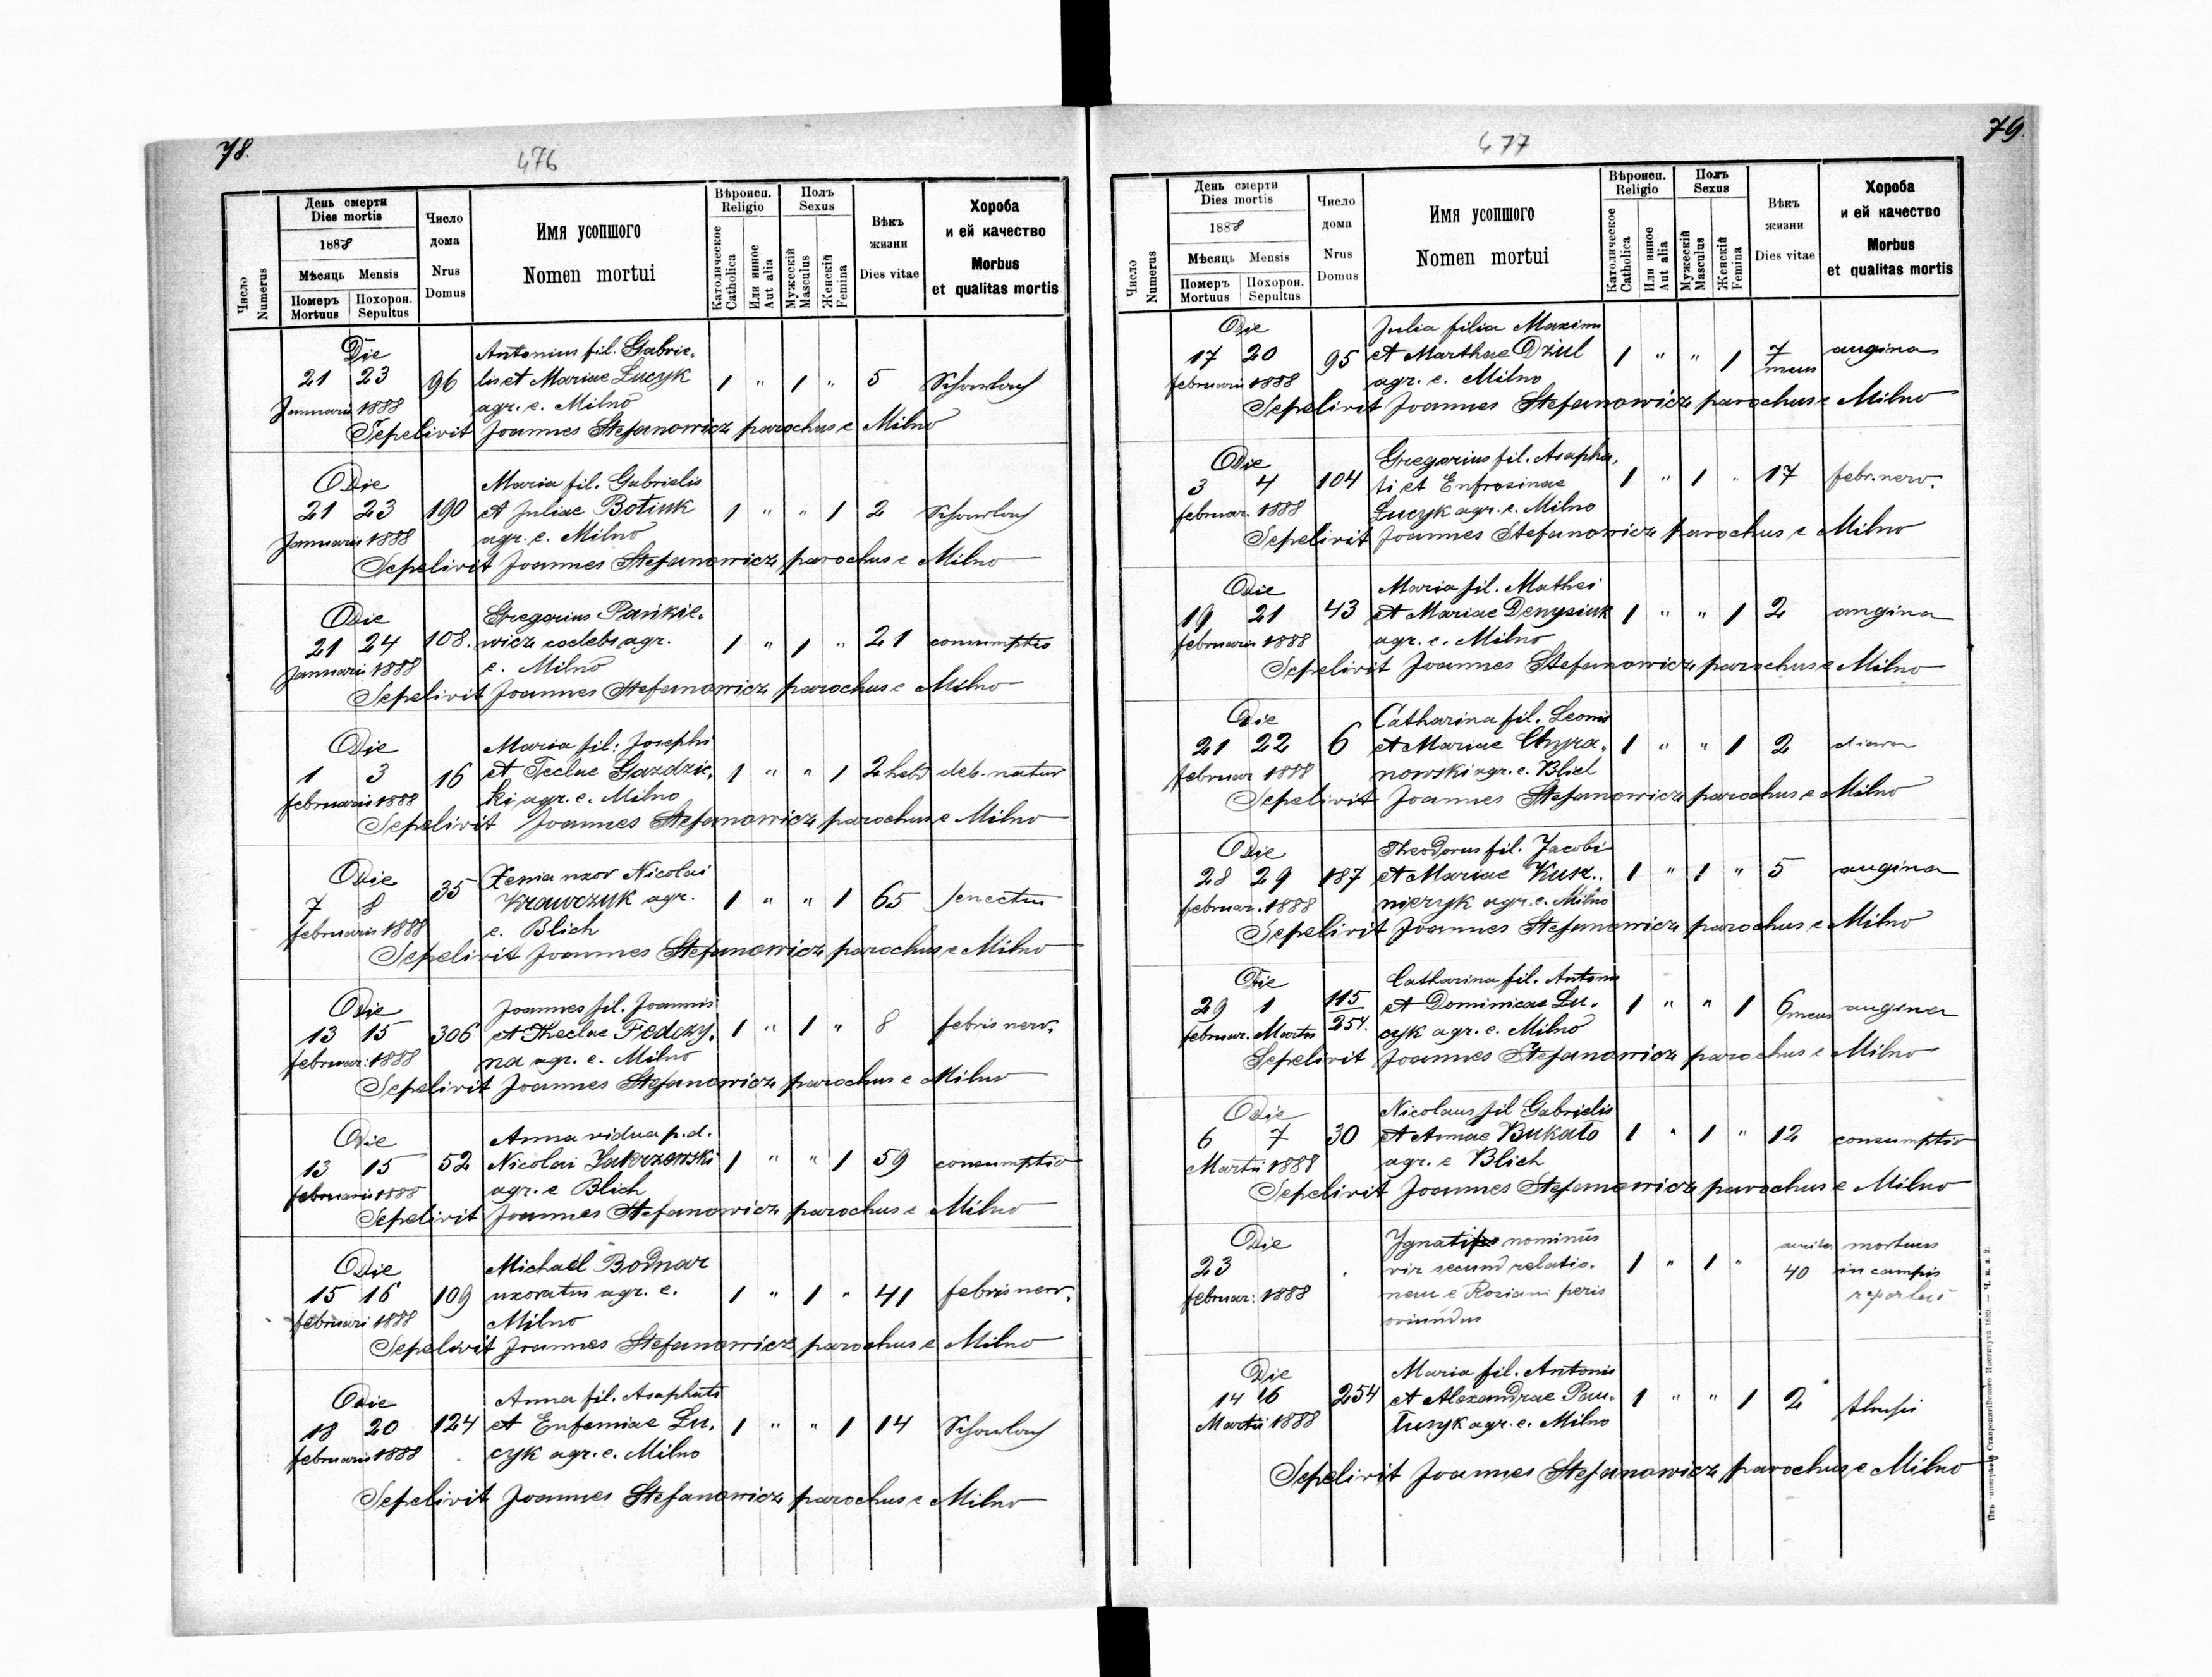 78.
476
Число
Numerus
День смерти
Dies mortis
1888
Мѣсяць Mensis
Померъ
Mortuus
Похорон.
Sepultus
Число
дома
Nrus
Domus
Имя усопшого
Nomen mortui
Вѣроисп.
Religio
Католическое
Catholica
Или инное
Aut alia
Полъ
Sexus
Мужескій
Masculus
Женскій
Femina
Вѣкъ
жизни
Dies vitae
Хороба
и ей качество
Morbus
et qualitas mortis
Die Antonius fil. Gabrie-
21 23 96 lis et Mariae Łucyk 1 " 1 " 5 Scharlach
Januarii 1888 agr. e. Milno
Sepelivit Joannes Stefanowicz parochus e Milno
Die Maria fil. Gabrielis
21 23 190 et Juliae Botiuk 1 " " 1 2 Scharlach
Januarii 1888 agr. e. Milno
Sepelivit Joannes Stefanowicz parochus e Milno
Die Gregorius Pańkie-
21 24 108. wicz coelebs agr. 1 " 1 " 21 consumptio
Januarii 1888 e. Milno
Sepelivit Joannes Stefanowicz parochus e Milno
Die Maria fil: Josephi
1 3 16 et Teclae Gazdzic- 1 " " 1 2 hebd deb. natur
februarii 1888 ki agr. e. Milno
Sepelivit Joannes Stefanowicz parochus e Milno
Die Xenia uxor Nicolai
7 8 35 Krawczyk agr. 1 " " 1 65 senectus
februarii 1888 e. Blich
Sepelivit Joannes Stefanowicz parochus e Milno
Die Joannes fil. Joannis
13 15 306 et Theclae Fedczy- 1 " 1 " 8 febris nerv.
februar: 1888 na agr. e. Milno
Sepelivit Joannes Stefanowicz parochus e Milno
Die Anna vidua p.d.
13 15 52 Nicolai Zakrzewski 1 " " 1 59 consumptio
februarii 1888 agr. e Blich
Sepelivit Joannes Stefanowicz parochus e Milno
Die Michael Bodnar
15 16 109 uxoratus agr. e. 1 " 1 " 41 febris nerv.
februari 1888 Milno
Sepelivit Joannes Stefanowicz parochus e Milno
Die Anna fil. Asaphati
18 20 124 et Eufemiae Łu- 1 " " 1 14 Scharlach
februarii 1888 cyk agr. e. Milno
Sepelivit Joannes Stefanowicz parochus e Milno
79.
477
Число
Numerus
День смерти
Dies mortis
1888
Мѣсяць Mensis
Померъ
Mortuus
Похорон.
Sepultus
Число
дома
Nrus
Domus
Имя усопшого
Nomen mortui
Вѣроисп.
Religio
Католическое
Catholica
Или инное
Aut alia
Полъ
Sexus
Мужескій
Masculus
Женскій
Femina
Вѣкъ
жизни
Dies vitae
Хороба
и ей качество
Morbus
et qualitas mortis
Die Julia filia Maximi
17 20 95 et Marthae Dziul 1 " " 1 7 mens angina
februarii 1888 agr. e. Milno
Sepelivit Joannes Stefanowicz parochus e Milno
Die Gregorius fil. Asapha-
3 4 104 ti et Eufrosinae 1 " 1 " 17 febr. nerv.
februar. 1888 Łucyk agr. e. Milno
Sepelivit Joannes Stefanowicz parochus e Milno
Die Maria fil. Mathei
19 21 43 et Mariae Denysiuk 1 " " 1 2 angina
februarii 1888 agr. e. Milno
Sepelivit Joannes Stefanowicz parochus e Milno
Die Catharina fil. Leonis
21 22 6 et Mariae 1 " " 1 2
februar 1888 nowski agr. e. Blich
Sepelivit Joannes Stefanowicz parochus e Milno
Die Theodorus fil. Jacobi
28 29 187 et Mariae Kusz- 1 " 1 " 5 angina
februar. 1888 nieryk agr. e. Milno
Sepelivit Joannes Stefanowicz parochus e Milno
Die Catharina fil. Antonii
29 1 115/254. et Dominicae Łu- 1 " " 1 6 mens angina
februar. Martii cyk agr. e. Milno
Sepelivit Joannes Stefanowicz parochus e Milno
Die Nicolaus fil Gabrielis
6 7 30 et Annae Bukało 1 " 1 " 12 consumptio
Martii 1888 agr. e Blich
Sepelivit Joannes Stefanowicz parochus e Milno
Die Ignatius nominus mortuus
23 vir secund relatio- 1 " 1 " 40 in campis
februar: 1888 nem e
oriundus
Die Maria fil. Antonii
14 16 254 et Alexandrae Pau- 1 " " 1 2
Martii 1888 agr. e. Milno
Sepelivit Joannes Stefanowicz parochus e Milno